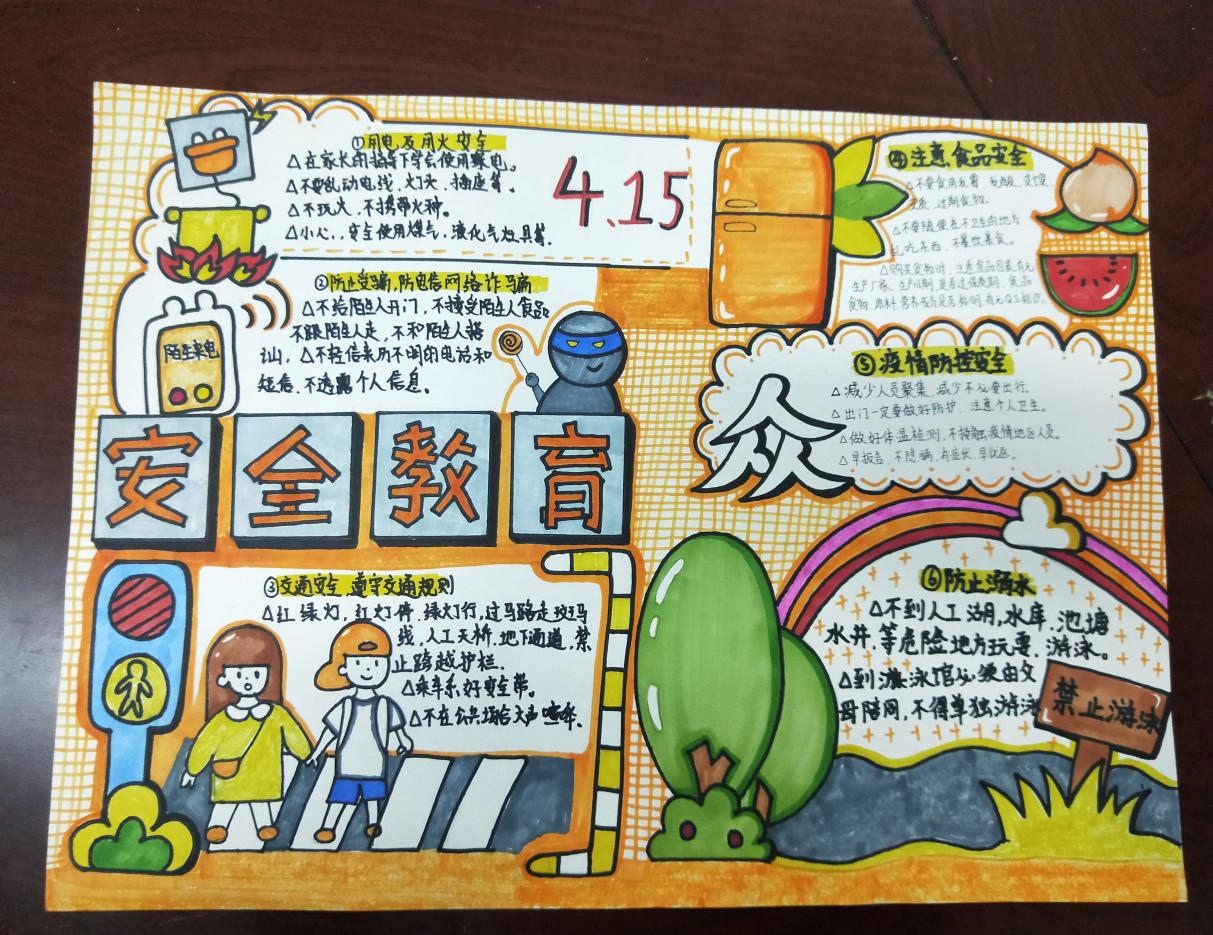 ①用电及用火安全
△在家长的指导下学会使用家电。
△不要乱动电线、灯头、插座等。
△不玩火,不携带火种。
△小心,安全使用煤气、液化气灶具等。
4.15
②防止受骗,防电信网络诈骗
△不给陌生人开门,不接受陌生人食品
不跟陌生人走,不和陌生人搭
讪,△不轻信来历不明的电话和
短信,不透露个人信息。
陌生来电
安全教育
③交通安全,遵守交通规则
△红绿灯,红灯停 绿灯行,过马路走斑马
线,人工天桥,地下通道,禁
止跨越护栏.
△乘车系好安全带。
△不在公共场合大声喧哗.
④注意食品安全
△不要食用发霉、
变质、过期食物。
△不要随便在不卫生的地方
乱吃东西,不暴饮暴食。
△购买食物时,注意食品包装有无
生产厂家、生产日期,是否过保质期,食品
食物原料,营养成分是否标明,有无QS标识,
⑤疫情防控安全
众
△减少人员聚集,减少不必要出行。
△出门一定要做好防护,注意个人卫生。
△做好体温检测,不接触疫情地区人员。
△早报告,不隐瞒,有症状,早就医。
⑥防止溺水
△不到人工湖,水库.池塘
水井.等危险地方玩耍.游泳。
△到游泳馆必须由父
母陪同,不得单独游泳
禁止游泳